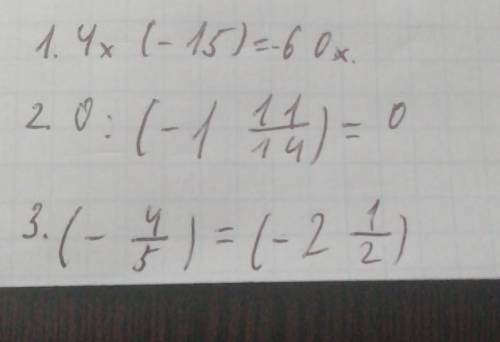 1. 4x (-15)=-60x.
2. 0 : (-1 11/14) = 0
3. (- 4/5) = (-2 1/2)